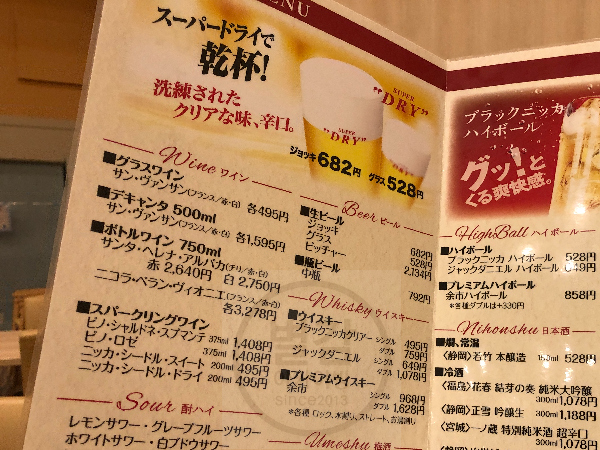 MENU
スーパードライで
乾杯!
洗練された
クリアな味、辛口。
SUPER
"DRY"
SUPER
"DRY"
ジョッキ682円 グラス528円
Wine ワイン
■グラスワイン
サン・ヴァンサン(フランス/赤・白) 各495円
■デキャンタ 500ml
サン・ヴァンサン(フランス/赤・白) 各1,595円
■ボトルワイン 750ml
サンタ・ヘレナ・アルパカ(チリ/赤・白)
赤 2,640円 白 2,750円
ニコラ・ベラン・ヴィオニエ(フランス/赤・白)
各3,278円
■スパークリングワイン
ピノ・シャルドネ・スプマンテ 375ml 1,408円
ピノ・ロゼ 375ml 1,408円
ニッカ・シードル・スイート 200ml 495円
ニッカ・シードル・ドライ 200ml 495円
Sour 酎ハイ
レモンサワー・グレープフルーツサワー
ホワイトサワー・白ブドウサワー
Beer ビール
■生ビール
ジョッキ 682円
グラス 528円
ピッチャー 2,134円
■瓶ビール
中瓶 792円
Whisky ウイスキー
■ウイスキー
ブラックニッカクリアー シングル 495円
ダブル 759円
ジャックダニエル シングル 649円
ダブル 1,078円
■プレミアムウイスキー
余市 シングル 968円
ダブル 1,628円
*各種 ロック、水割り、ストレート、お湯割り
since2013
Umeshu 梅酒
ブラックニッカ
ハイボール
グッ!と
くる爽快感。
HighBall ハイボール
■ハイボール
ブラックニッカ ハイボール 528円
ジャックダニエル ハイボール 649円
■プレミアムハイボール
余市ハイボール 858円
*各種ダブルは+330円
Nihonshu 日本酒
■燗、常温
〈静岡〉若竹 本醸造 153ml 528円
■冷酒
〈福島〉花春 結芽の奏 純米大吟醸
300ml 1,078円
〈静岡〉正雪 吟醸生 300ml 1,188円
〈宮城〉一ノ蔵 特別純米酒 超辛口
300ml 1,078円